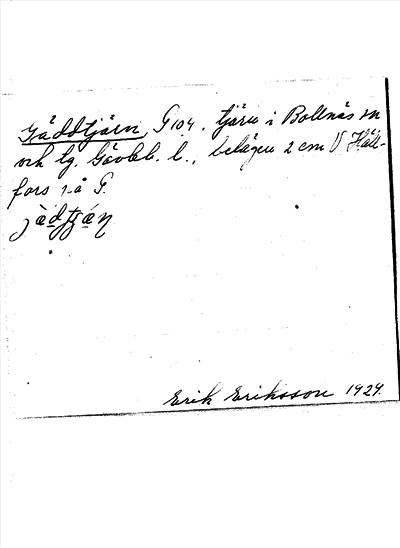 Gäddtjärn G 104. tjärn i Bollnäs sn
och tg. Gävleb. l., belägen 2 cm V Häll-
fors på G.
Erik Eriksson 1929.